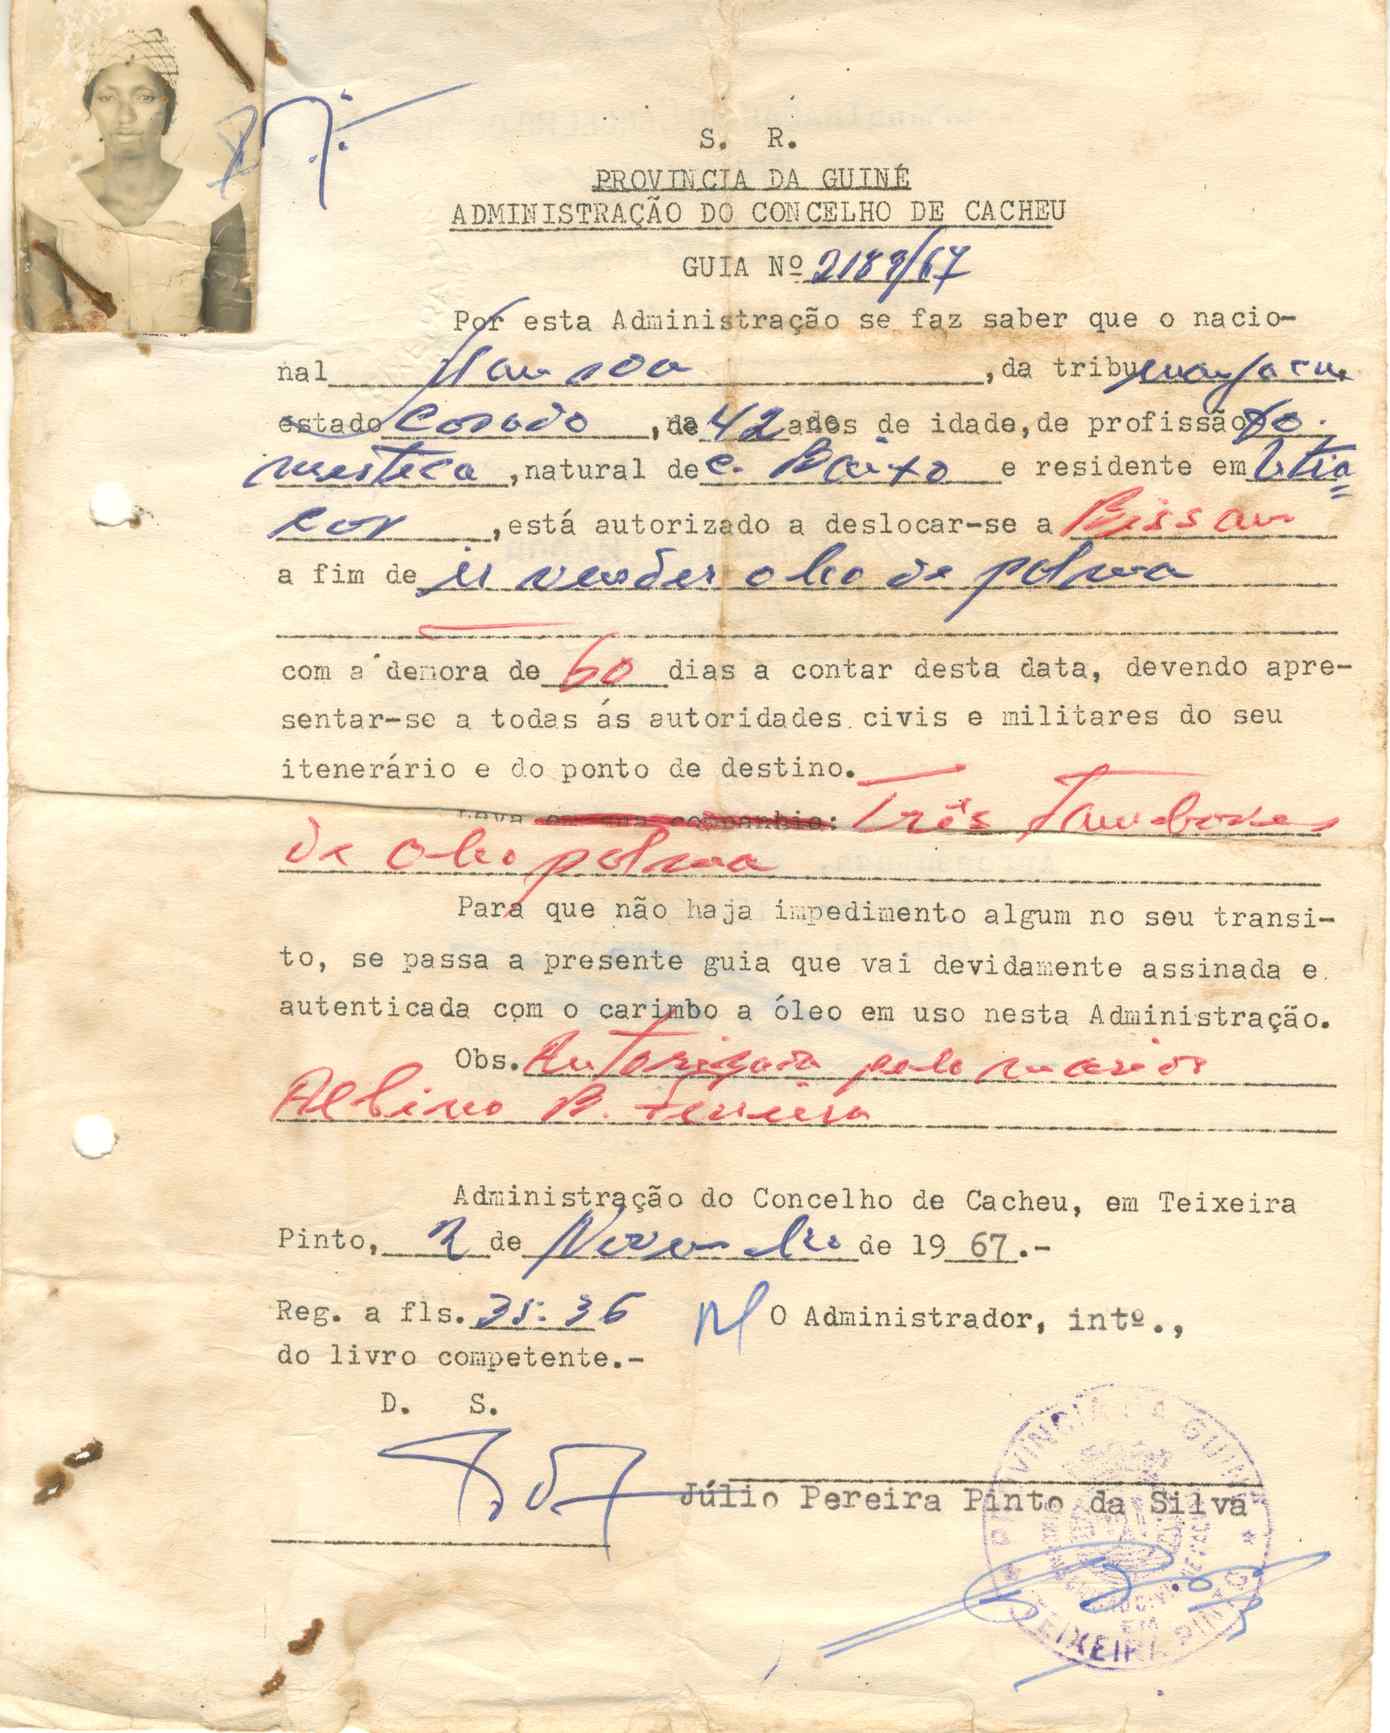 S. R.
PROVINCIA DA GUINÉ
ADMINISTRAÇÃO DO CONCELHO DE CACHEU
GUIA Nº 2189/67
Por esta Administração se faz saber que o nacio-
nal ,da tribu manjaca
estado casado ,de 42 anos de idade,de profissão do-
mestica ,natural de C. Baixo e residente em
,está autorizado a deslocar-se a Bissau
a fim de ir vender oleo de palma
com a demora de 60 dias a contar desta data, devendo apre-
sentar-se a todas ás autoridades civis e militares do seu
itenerário e do ponto de destino.
Leva em sua companhia: Três Tambores
de oleo palma
Para que não haja impedimento algum no seu transi-
to, se passa a presente guia que vai devidamente assinada e
autenticada com o carimbo a óleo em uso nesta Administração.
Obs. Autorizada pelo
Albino B.
Administração do Concelho de Cacheu, em Teixeira
Pinto, 2 de Novembro de 19 67.-
Reg. a fls. 35-36 O Administrador, intº.,
do livro competente.-
D. S.
Júlio Pereira Pinto da Silva
PROVINCIA DA GUINÉ
TEIXEIRA PINTO